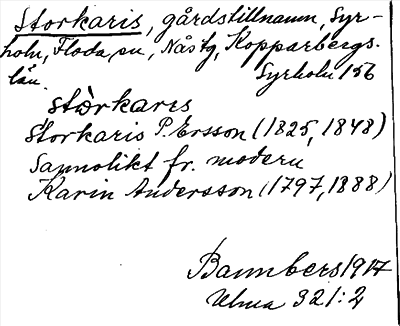 Storkaris, gårdstillnamn, Syr-
holn, Floda sn, Nås tg, Kopparbergs
län. Syrholn 156
stòrkares
Storkaris P. Ersson (1825, 1848)
Sannolikt fr. modern
Karin Andersson (1797, 1888)
Bannbers 1917
Ulma 321:2